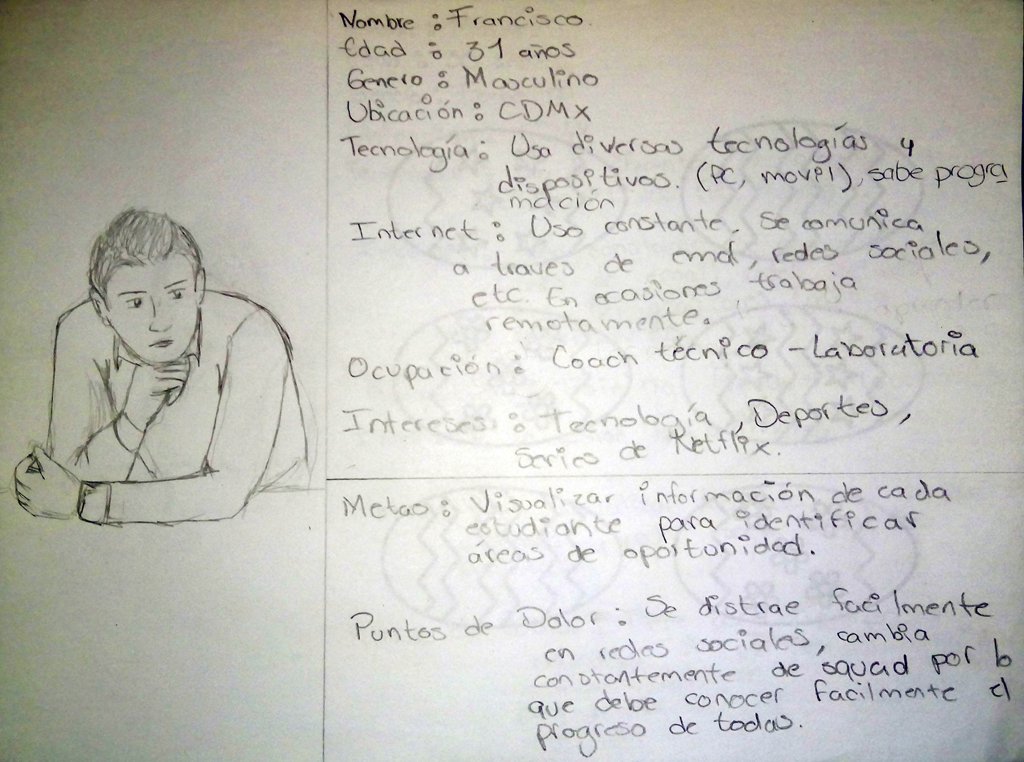 Nombre : Francisco.
Edad : 31 años
Genero : Masculino
Ubicación : CDMX
Tecnología : Usa diversas tecnologías y
dispositivos. (PC, movil), sabe progra
mación
Internet : Uso constante. Se comunica
a traves de email, redes sociales,
etc. En ocasiones, trabaja
remotamente.
Ocupación : Coach técnico - Laboratoria
Intereses : Tecnología, Deportes,
Series de Netflix.
Metas : Visualizar información de cada
estudiante para identificar
áreas de oportunidad.
Puntos de Dolor : Se distrae facilmente
en redes sociales, cambia
constantemente de squad por lo
que debe conocer facilmente el
progreso de todas.